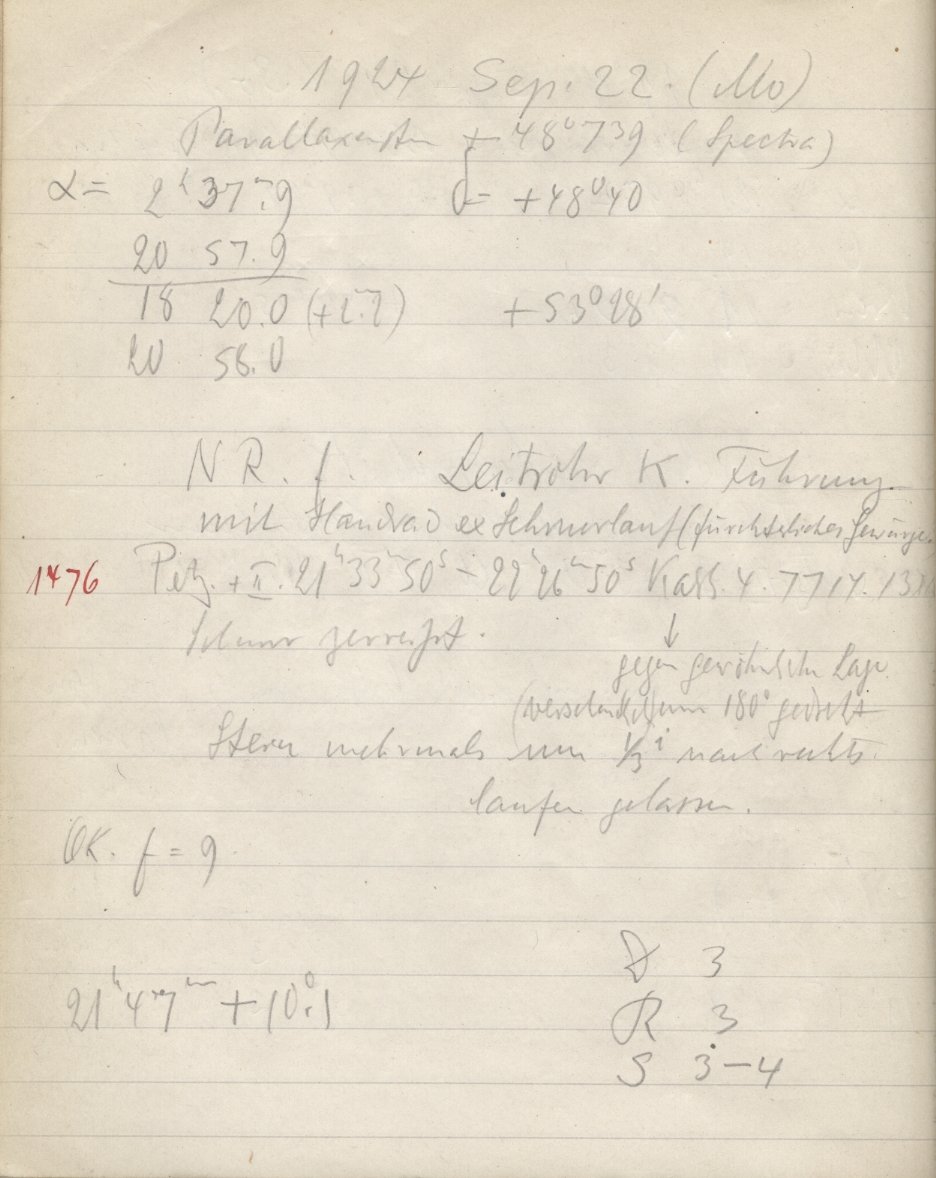 1924 Sep. 22. (Mo)
Parallaxenstern +48°739 (Spectra)
α = 2ʰ 37ᵐ.9 δ = +48°40
20 57.9
18 20.0 +53°28'
20 58.0
NR. f. Leitrohr K. Führung
mit Handrad ex Schnurlauf (fürchterliches
1476 Petz. + II. 21ʰ33ᵐ50ˢ – 22ʰ26ᵐ50ˢ Kass. 4. 7717.
Schnur zerreißt.
↓
gegen gewöhnliche Lage
um 180° gedreht
Stern mehrmals um nach rechts
laufen gelassen.
OK. f = 9
D 3
21ʰ47ᵐ +10°.1 R 3
S 3–4